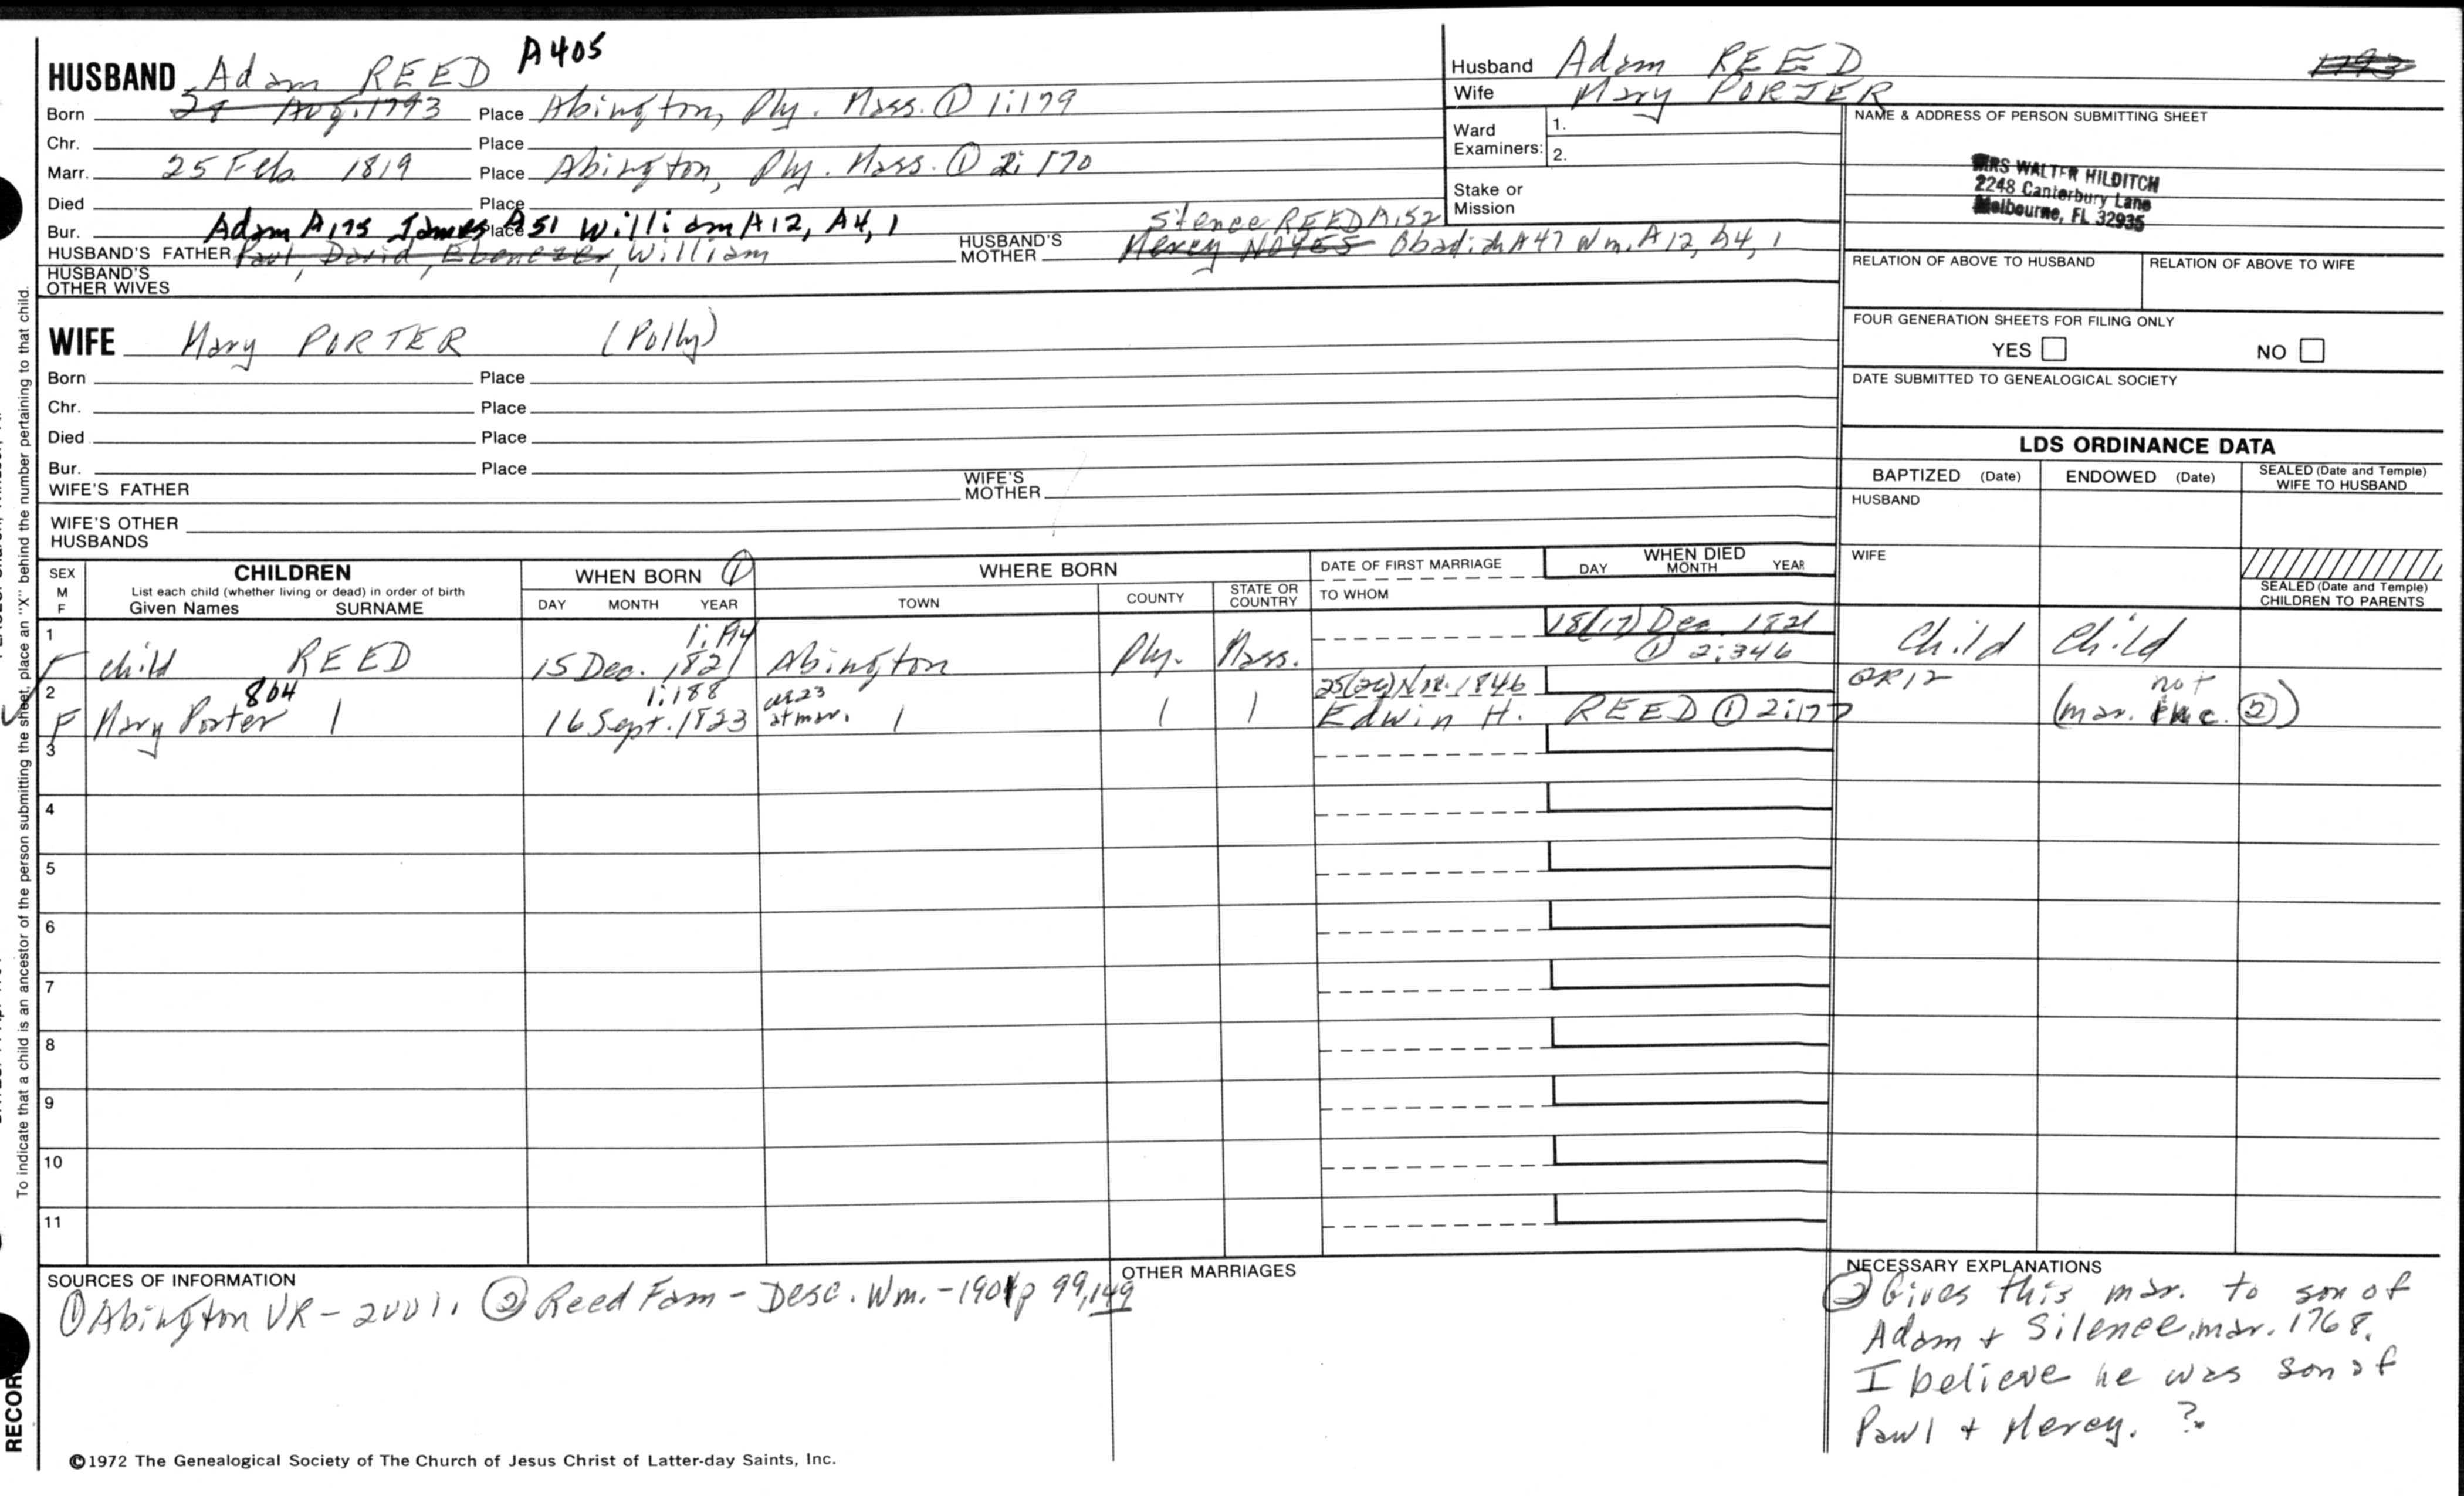 HUSBAND Adam REED A405
Born 29 Aug. 1793 Place Abington, Ply. Mass. ① 1:179
Chr. Place
Marr. 25 Feb. 1819 Place Abington, Ply. Mass. ① 2:170
Died Place
Bur. Place
Adam A175 James A51 William A12, A4, 1
HUSBAND'S FATHER Paul, David, Ebenezer, William
HUSBAND'S MOTHER Mercy NOYES Silence REED A152 Obadiah A47 Wm. A12, A4, 1
HUSBAND'S OTHER WIVES
WIFE Mary PORTER (Polly)
Born Place
Chr. Place
Died Place
Bur. Place
WIFE'S FATHER
WIFE'S MOTHER
WIFE'S OTHER HUSBANDS
Husband Adam REED 1793
Wife Mary PORTER
Ward Examiners: 1.
2.
Stake or Mission
NAME & ADDRESS OF PERSON SUBMITTING SHEET
MRS WALTER HILDITCH
2248 Canterbury Lane
Melbourne, FL 32935
RELATION OF ABOVE TO HUSBAND
RELATION OF ABOVE TO WIFE
FOUR GENERATION SHEETS FOR FILING ONLY
YES NO
DATE SUBMITTED TO GENEALOGICAL SOCIETY
LDS ORDINANCE DATA
BAPTIZED (Date)
ENDOWED (Date)
SEALED (Date and Temple) WIFE TO HUSBAND
HUSBAND
WIFE
SEALED (Date and Temple) CHILDREN TO PARENTS
SEX M F
CHILDREN
List each child (whether living or dead) in order of birth
Given Names SURNAME
WHEN BORN ①
DAY MONTH YEAR
WHERE BORN
TOWN COUNTY STATE OR COUNTRY
DATE OF FIRST MARRIAGE
TO WHOM
WHEN DIED
DAY MONTH YEAR
1 F child REED 15 Dec. 1821 Abington Ply. Mass. 18(17) Dec. 1821 ① 2:346 Child Child
2 F Mary Porter 804 1:188 16 Sept. 1823 at mar. 25(26) Nov. 1846 Edwin H. REED ① 2:177 (mar. not inc. ②)
3
4
5
6
7
8
9
10
11
SOURCES OF INFORMATION
① Abington VR - 2 vol. ② Reed Fam - Desc. Wm. - 1901 p 99, 149
OTHER MARRIAGES
NECESSARY EXPLANATIONS
② Gives this mar. to son of
Adam + Silence, mar. 1768.
I believe he was son of
Paul + Mercy. ?
©1972 The Genealogical Society of The Church of Jesus Christ of Latter-day Saints, Inc.
To indicate that a child is an ancestor of the person submitting the sheet, place an "X" behind the number pertaining to that child.